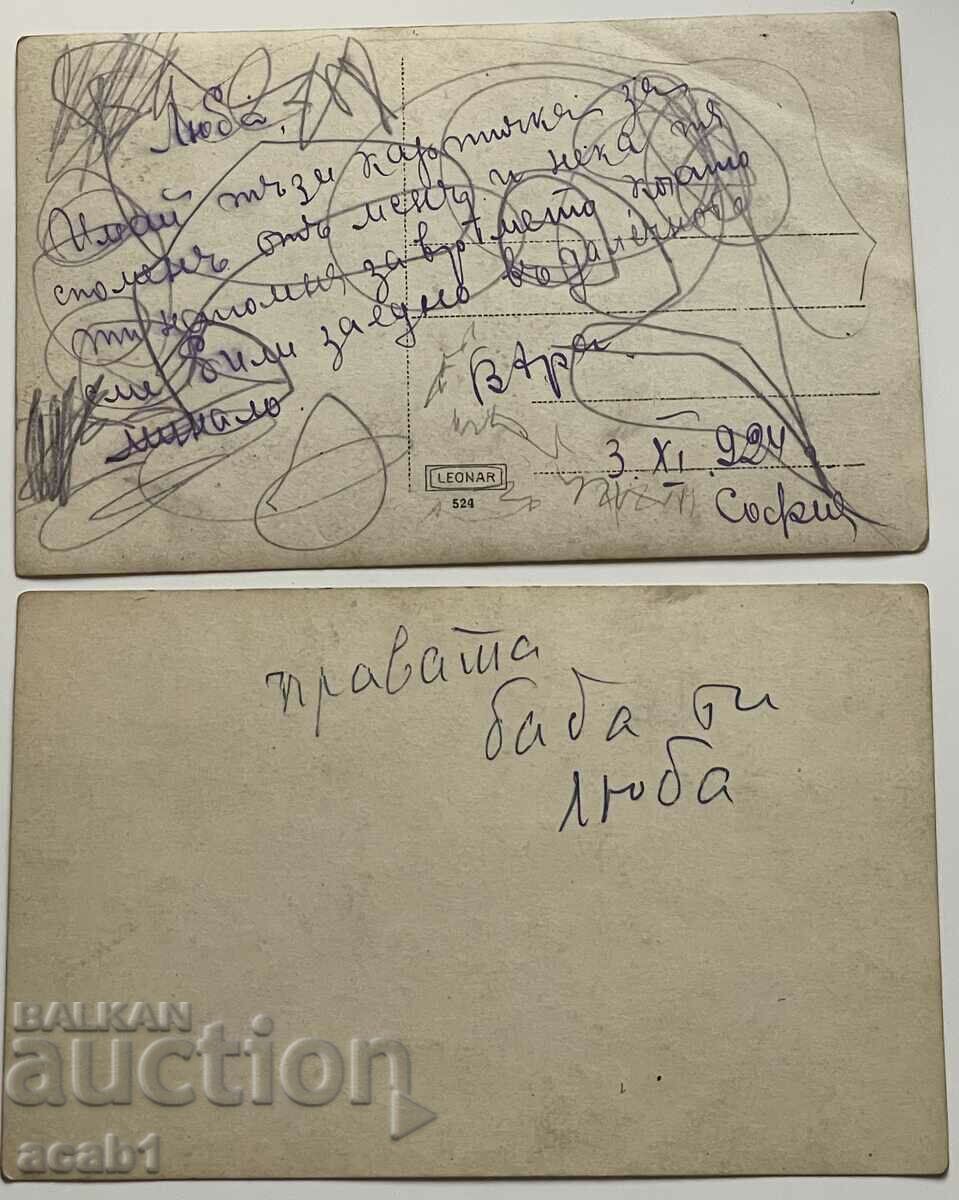 Люба,
Имай тъзи картичка за
споменъ отъ менъ и нека тя
ти напомня за врѣмето когато
сме били заедно въ далечното
минало
Вара
3. XI. 924
София
LEONAR
524
правата
баба ти
Люба
BALKAN
auction
acab1